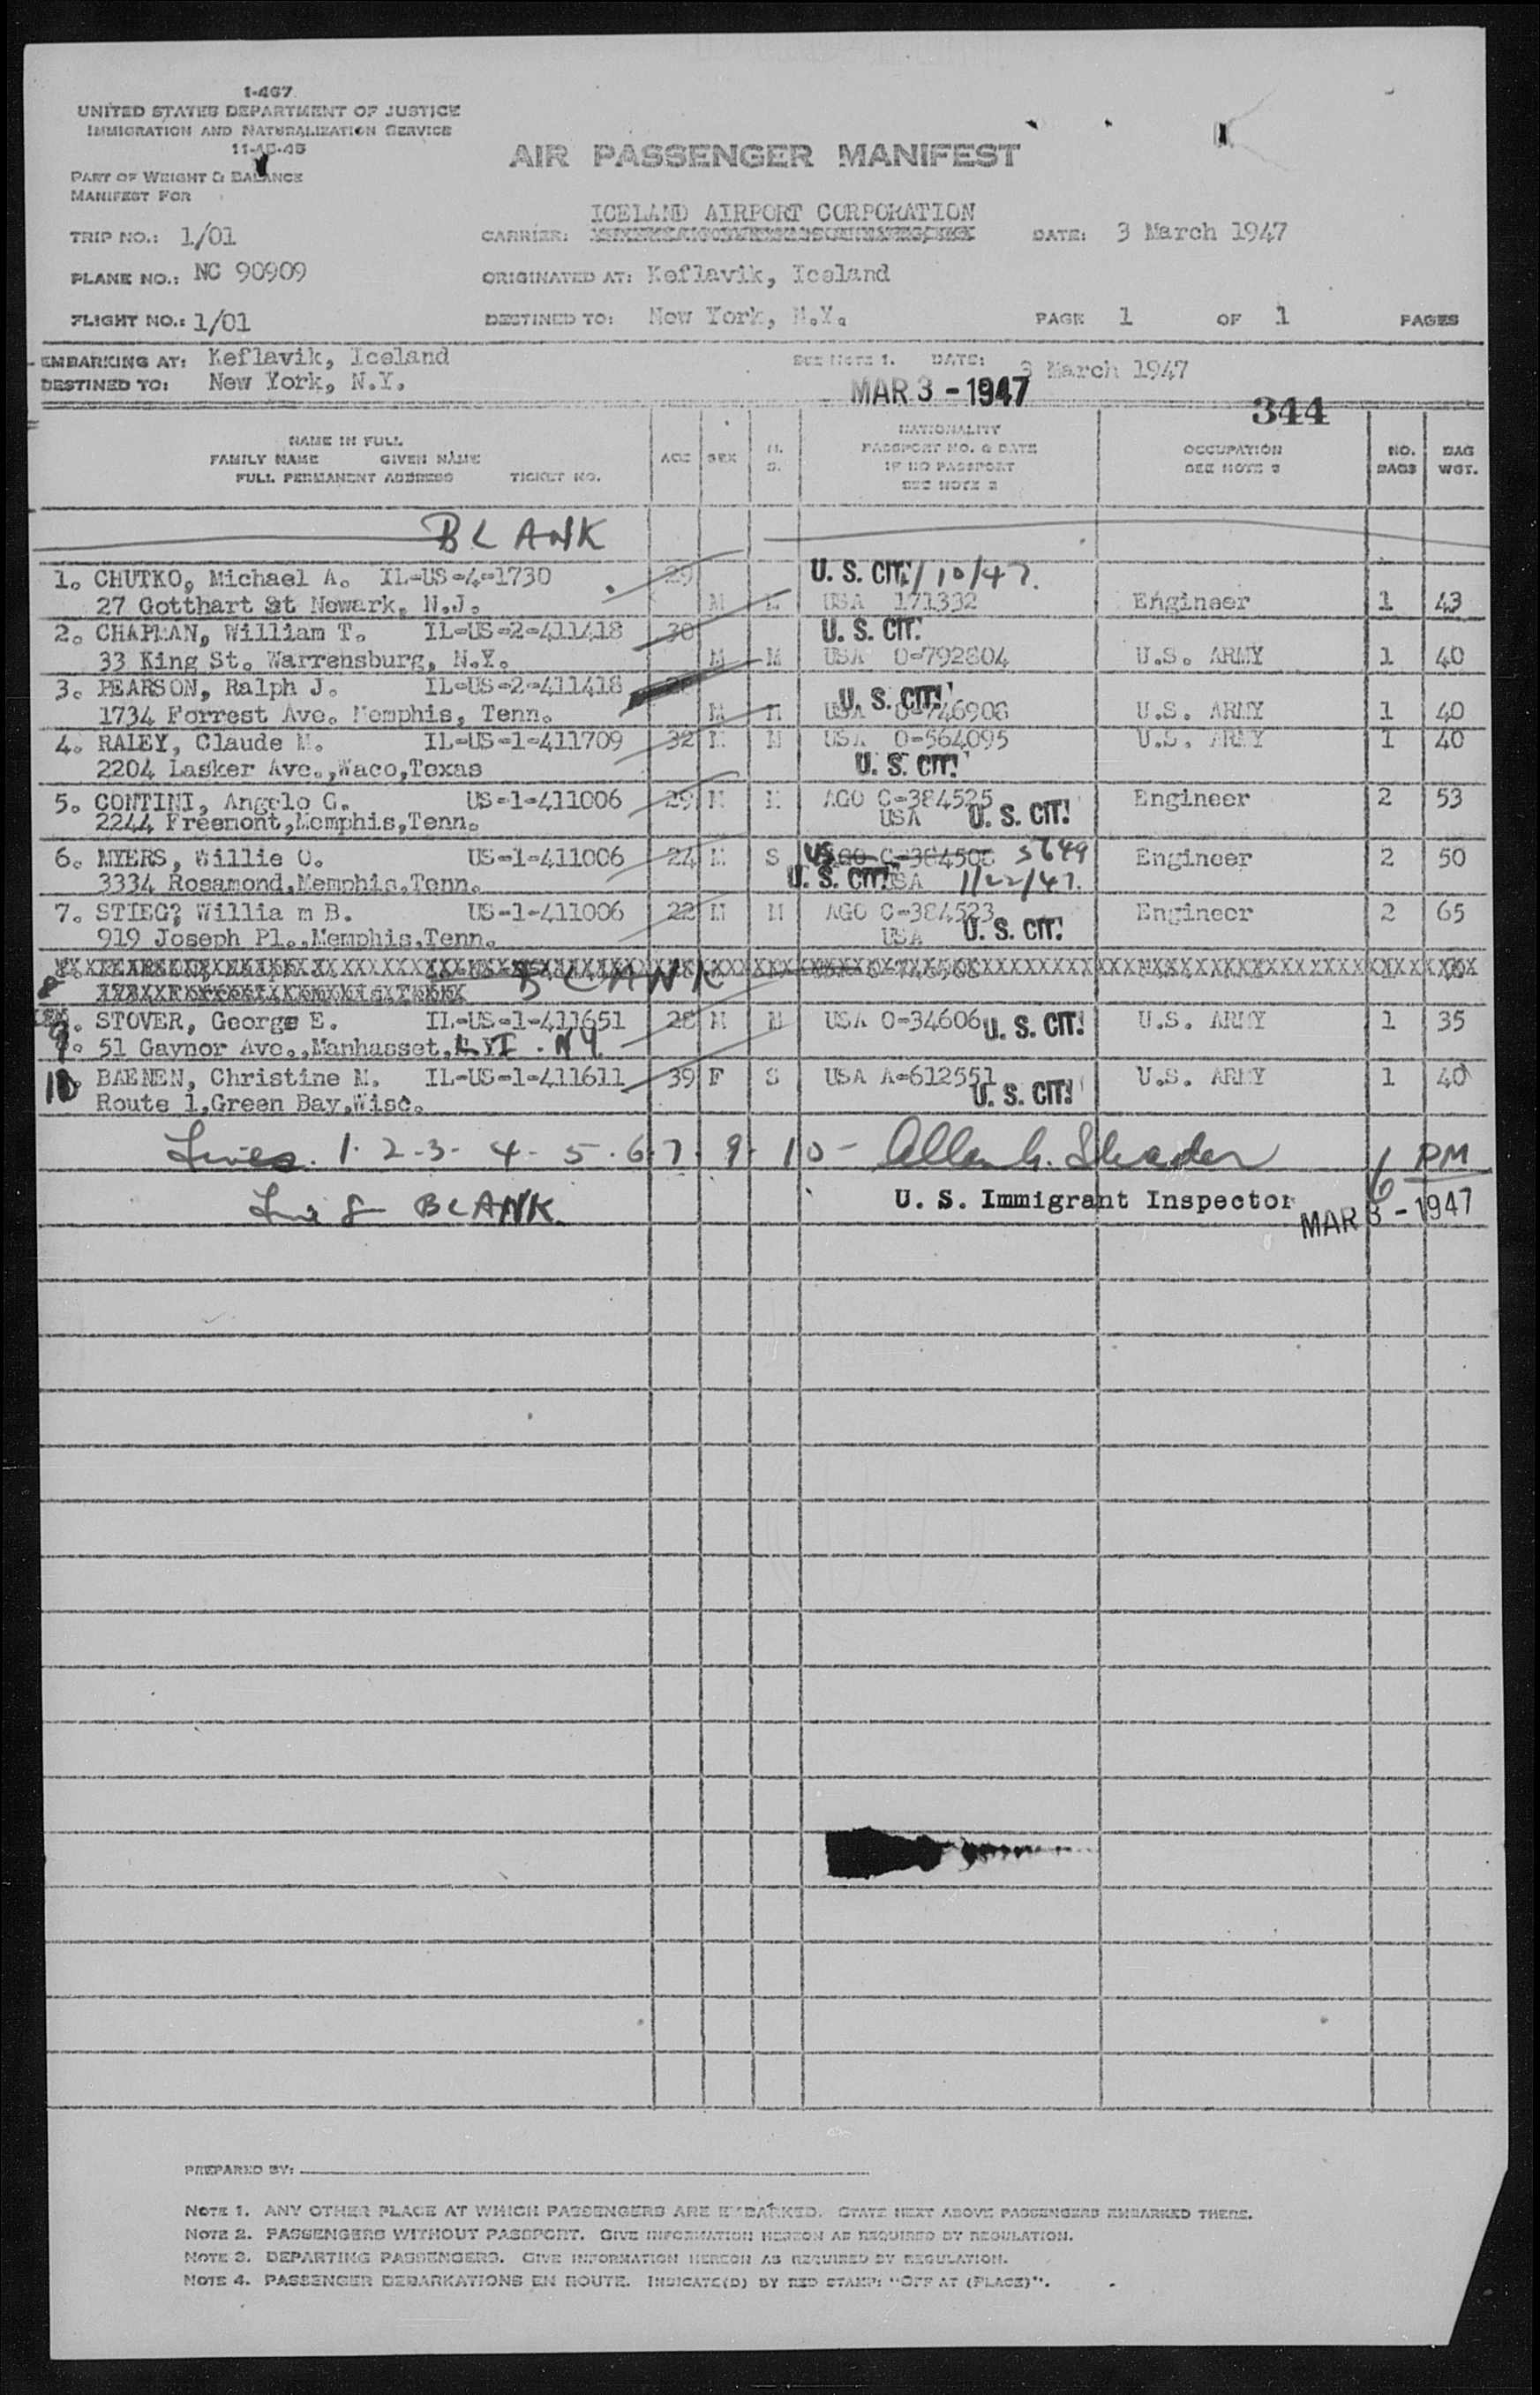 1-467
UNITED STATES DEPARTMENT OF JUSTICE
IMMIGRATION AND NATURALIZATION SERVICE
11-15-45
AIR PASSENGER MANIFEST
PART OF WEIGHT & BALANCE
MANIFEST FOR
ICELAND AIRPORT CORPORATION
TRIP NO.: 1/01 CARRIER: DATE: 3 March 1947
PLANE NO.: NC 90909 ORIGINATED AT: Keflavik, Iceland
FLIGHT NO.: 1/01 DESTINED TO: New York, N.Y. PAGE 1 OF 1 PAGES
EMBARKING AT: Keflavik, Iceland SEE NOTE 1. DATE: 3 March 1947
DESTINED TO: New York, N.Y. MAR 3 - 1947
344
NAME IN FULL
FAMILY NAME GIVEN NAME
FULL PERMANENT ADDRESS TICKET NO.
AGE SEX M. S.
NATIONALITY
PASSPORT NO. & DATE
IF NO PASSPORT
SEE NOTE 2
OCCUPATION
SEE NOTE 3
NO. BAGS
BAG WGT.
BLANK
1. CHUTKO, Michael A. IL-US-4-1730 29 U. S. CIT. 1/10/47.
27 Gotthart St Newark, N.J. M M USA 171332 Engineer 1 43
2. CHAPMAN, William T. IL-US-2-411418 30 U. S. CIT.
33 King St. Warrensburg, N.Y. M M USA O-792804 U.S. ARMY 1 40
3. PEARSON, Ralph J. IL-US-2-411418 U. S. CIT.
1734 Forrest Ave. Memphis, Tenn. M M USA O-746908 U.S. ARMY 1 40
4. RALEY, Claude M. IL-US-1-411709 32 M M USA O-564095 U.S. ARMY 1 40
2204 Lasker Ave.,Waco,Texas U. S. CIT.
5. CONTINI, Angelo G. US-1-411006 29 M M AGO C-384525 Engineer 2 53
2244 Freemont,Memphis,Tenn. USA U. S. CIT.
6. MYERS, Willie O. US-1-411006 24 M S US AGO C-384508 5649 Engineer 2 50
3334 Rosamond,Memphis,Tenn. U. S. CIT. USA 1/22/47.
7. STIEG? Willia m B. US-1-411006 22 M M AGO C-384523 Engineer 2 65
919 Joseph Pl.,Memphis,Tenn. USA U. S. CIT.
8 BLANK
9. STOVER, George E. IL-US-1-411651 28 M M USA O-34606 U. S. CIT. U.S. ARMY 1 35
51 Gaynor Ave.,Manhasset, L YI . NY.
10. BAENEN, Christine M. IL-US-1-411611 39 F S USA A-612551 U.S. ARMY 1 40
Route 1,Green Bay,Wisc. U. S. CIT.
Lines. 1. 2-3- 4- 5. 6. 7. 9. 10 - 6 PM
Line 8 BLANK U. S. Immigrant Inspector MAR 3 - 1947
PREPARED BY:
NOTE 1. ANY OTHER PLACE AT WHICH PASSENGERS ARE EMBARKED. STATE NEXT ABOVE PASSENGERS EMBARKED THERE.
NOTE 2. PASSENGERS WITHOUT PASSPORT. GIVE INFORMATION HEREON AS REQUIRED BY REGULATION.
NOTE 3. DEPARTING PASSENGERS. GIVE INFORMATION HEREON AS REQUIRED BY REGULATION.
NOTE 4. PASSENGER DEBARKATIONS EN ROUTE. INDICATE(D) BY RED STAMP: "OFF AT (PLACE)".